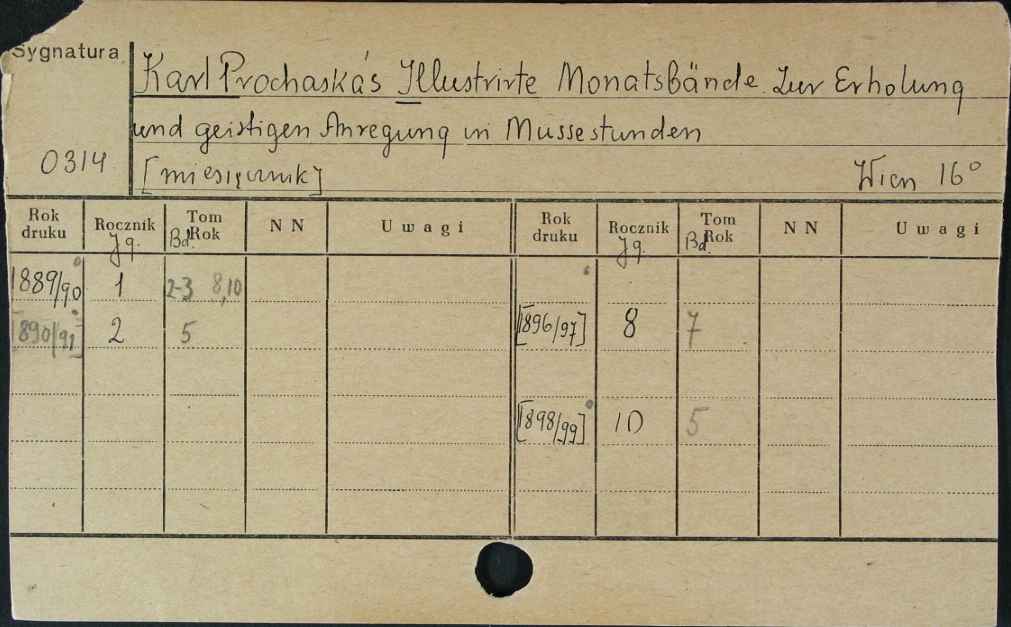 Sygnatura
Karl Prochaska's Illustrirte Monatsbände. Zur Erholung
und geistigen Anregung in Mussestunden
0314
[miesięcznik] Wien 16°
Rok druku Rocznik Jg. Tom Bd. Rok NN Uwagi Rok druku Rocznik Jg. Tom Bd. Rok NN Uwagi
1889/90 1 2-3 8,10
[1890/91] 2 5 [1896/97] 8 7
[1898/99] 10 5